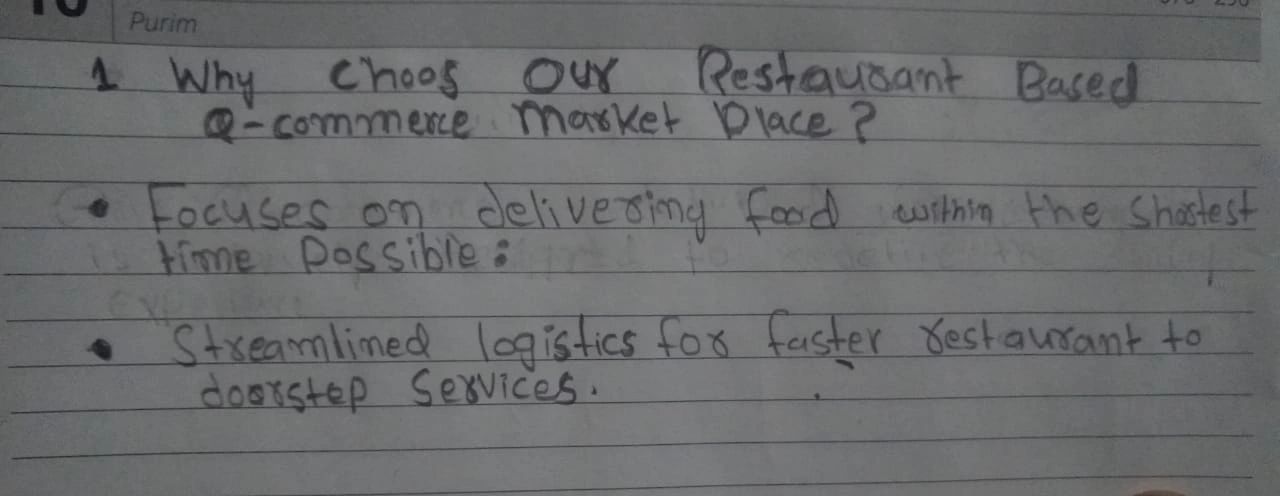 Purim
1 Why choos our Restaurant Based
Q-commerce market place?
• Focuses on delivering food within the shortest
time possible:
• Streamlined logistics for faster restaurant to
doorstep services.